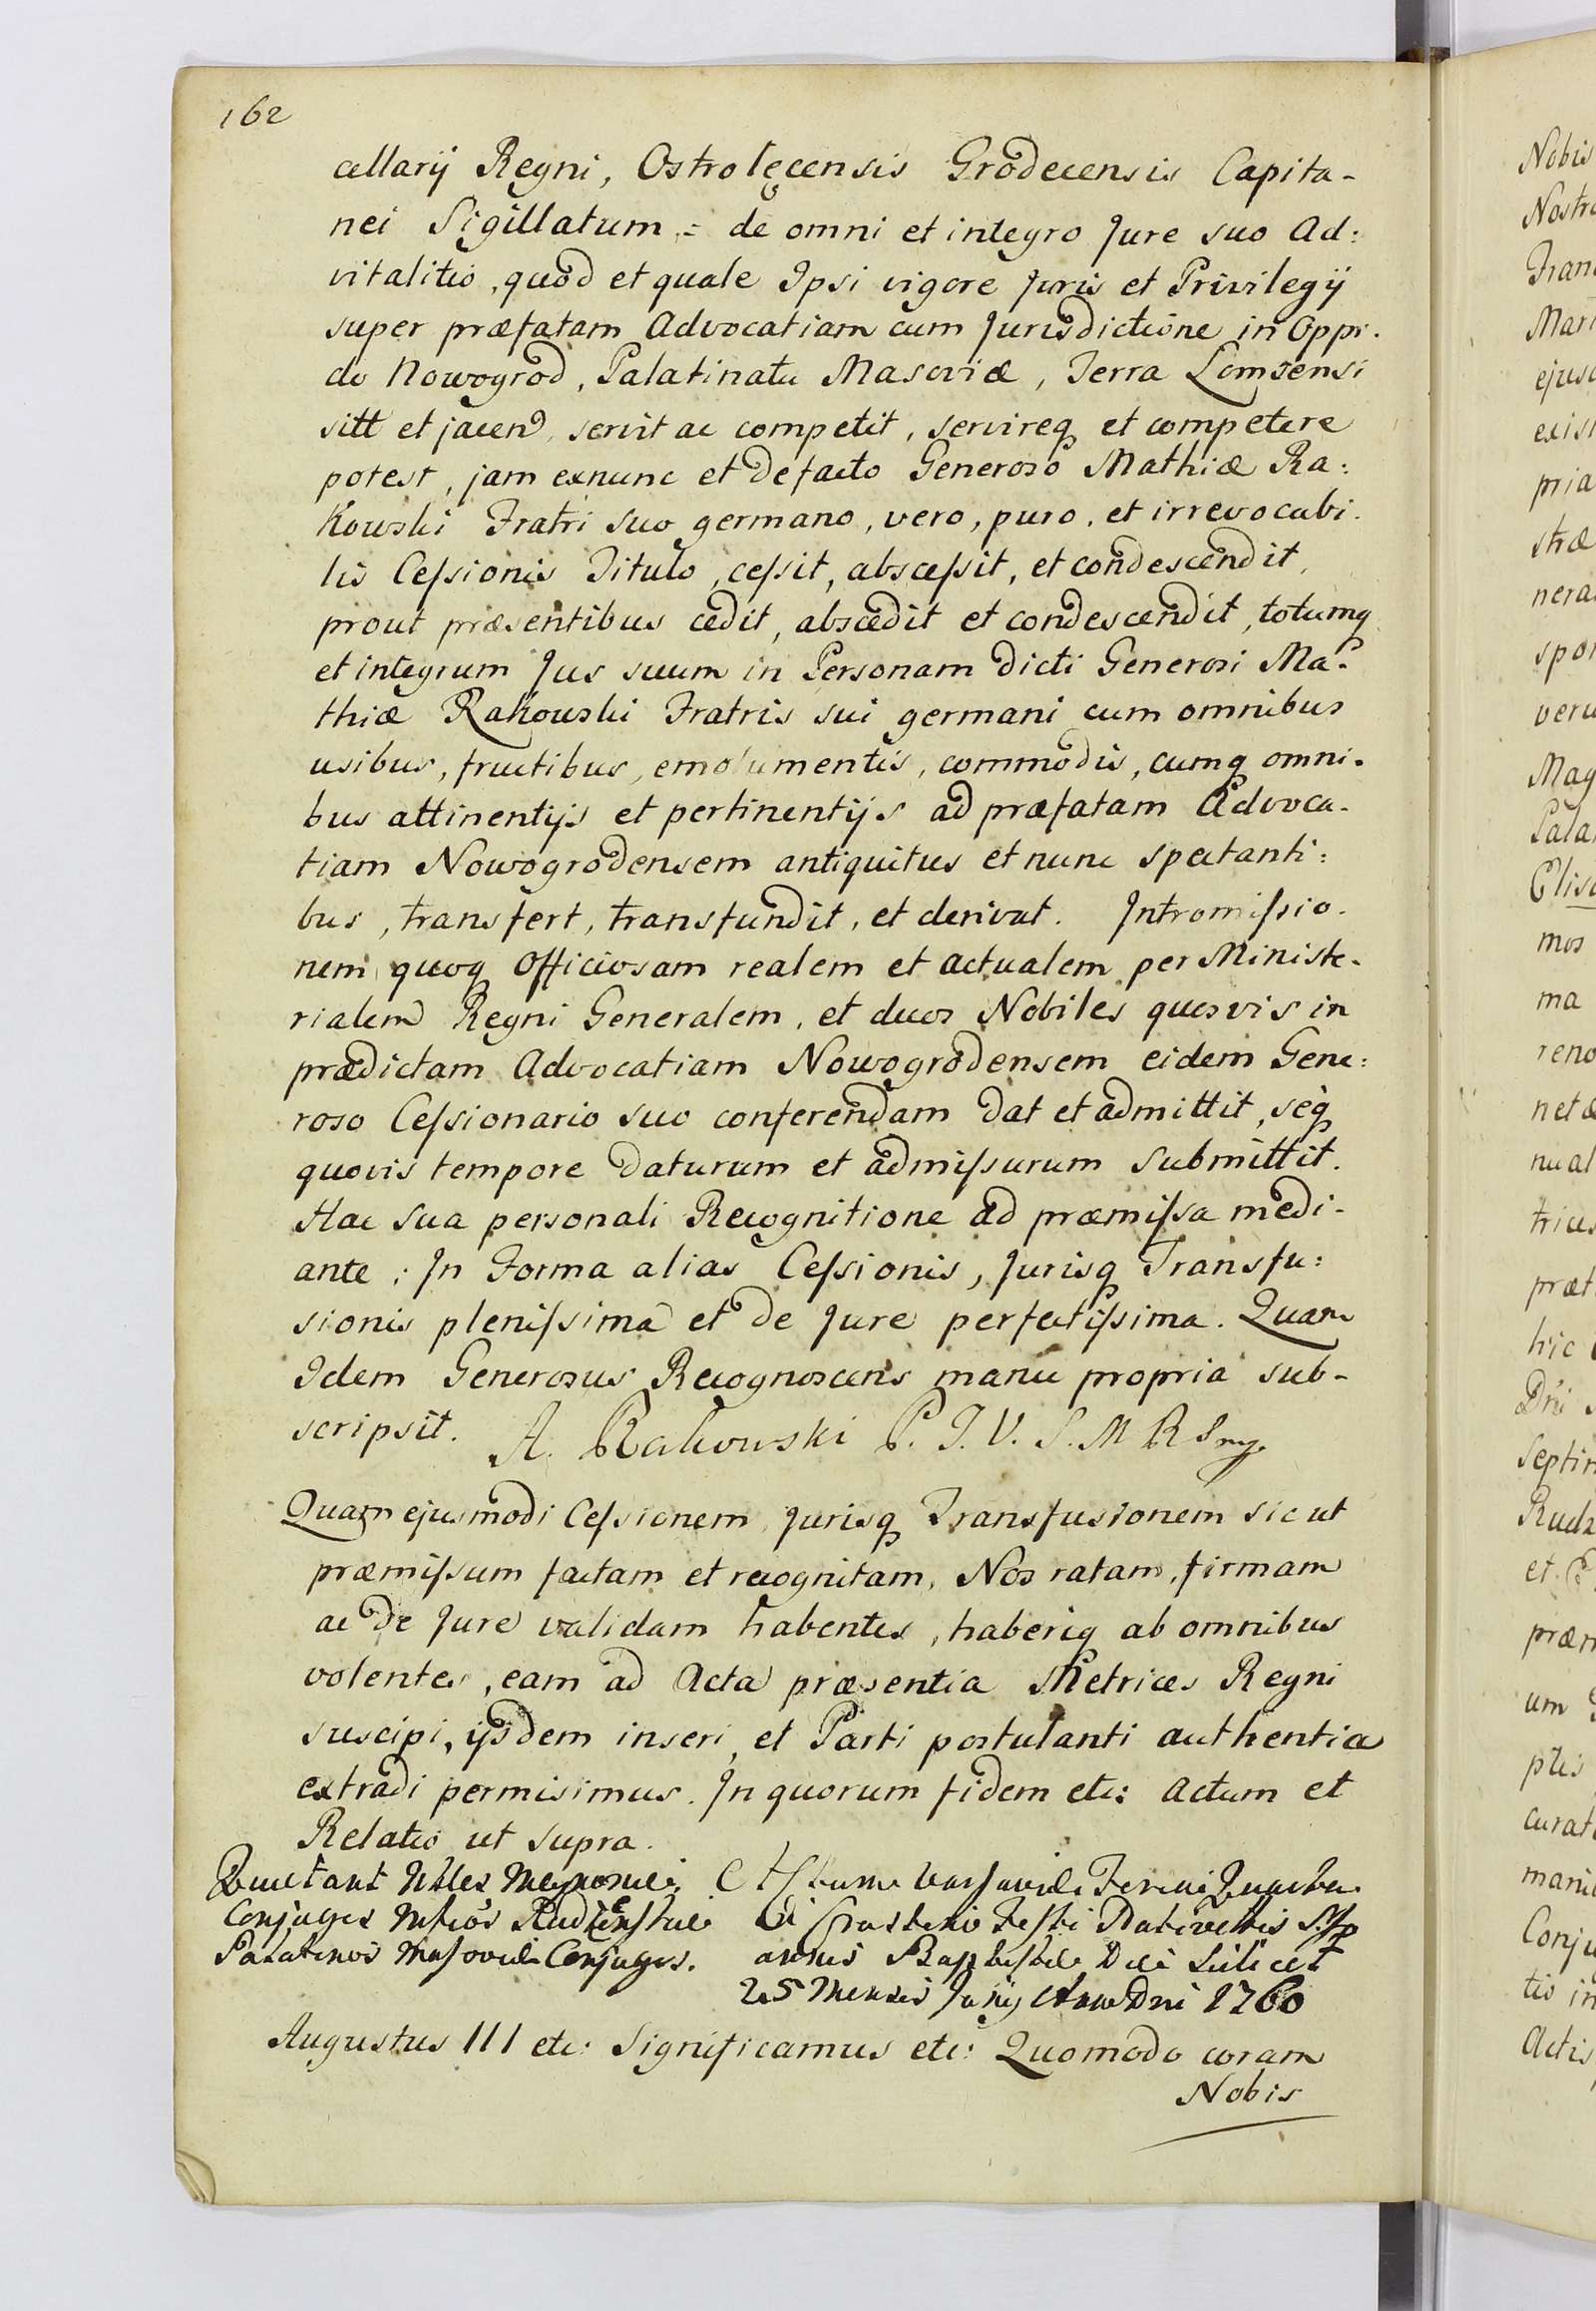 162
cellarij Regni, Ostrolęcensis Grodecensis Capita-
nei Sigillatum = de omni et integro Jure suo Ad:
vitalitio, quod et quale Ipsi vigore Juris et Privilegij
super præfatam Advocatiam cum Jurisdictione in Oppi-
do Nowogrod, Palatinatu Masoviæ, Terra Lomzensi
sitt et jacen, servit ac competit, servireq et competere
potest, jam exnunc et defacto Generoso Mathiæ Ra:
kowski Fratri suo germano, vero, puro, et irrevocabi-
lis Cessionis Titulo, cessit, abscessit, et condescendit,
prout præsentibus cedit, abscedit et condescendit, totumq
et integrum Jus suum in Personam dicti Generosi Ma-
thiæ Rakowski Fratris sui germani cum omnibus
usibus, fructibus, emolumentis, commodis, cumq omni-
bus attinentijs et pertinentijs ad præfatam Advoca-
tiam Nowogrodensem antiquitus et nunc spectanti:
bus, transfert, transfundit, et derivat. Intromissio-
nem quoq Officiosam realem et actualem per Ministe-
rialem Regni Generalem, et duos Nobiles quosvis in
prædictam Advocatiam Nowogrodensem eidem Gene:
roso Cessionario suo conferendam dat et admittit, seq
quovis tempore daturum et admissurum submittit.
Hac sua personali Recognitione ad præmissa medi-
ante; In Forma alias Cessionis, Jurisq Transfu:
sionis plenissima et de Jure perfectissima. Quam
Idem Generosus Recognoscens manu propria sub-
scripsit. A. Rakowski P. J. V. S. M R
Quam ejusmodi Cessionem Jurisq Transfusionem sic ut
præmissum factam et recognitam, Nos ratam, firmam
ac de Jure validam habentes, haberiq ab omnibus
volentes, eam ad Acta præsentia Metrices Regni
suscipi, ijsdem inseri, et Parti postulanti authentice
extradi permisimus. In quorum fidem etc: Actum et
Relatio ut supra.
Quietant Conjuges
Palatinos Masoviæ Conjuges.
Actum Varsaviæ Feria Quarta
in Crastino Festi
Baptistæ Die Scilicet
25 Mensis Junij Dni 1760
Augustus III etc: Significamus etc: Quomodo coram
Nobis
Nobis
Mari
pria
stræ
mos
ma
hic
um
Actis